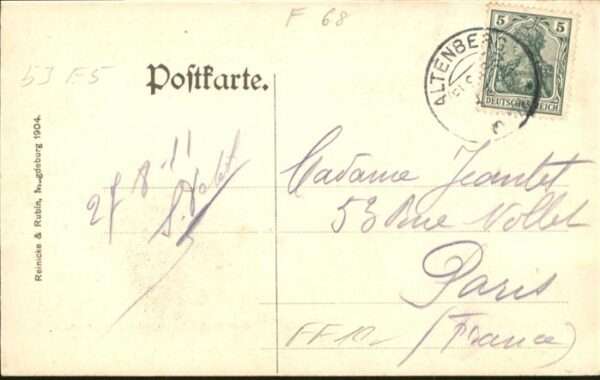 F 68
53 F5
5 5
DEUTSCHES REICH
ALTENBERG
Postkarte.
Reinicke & Rubin, Magdeburg 1904.
27 8 11
Madame Jeantet
53 Rue Vollet
Paris
(France)